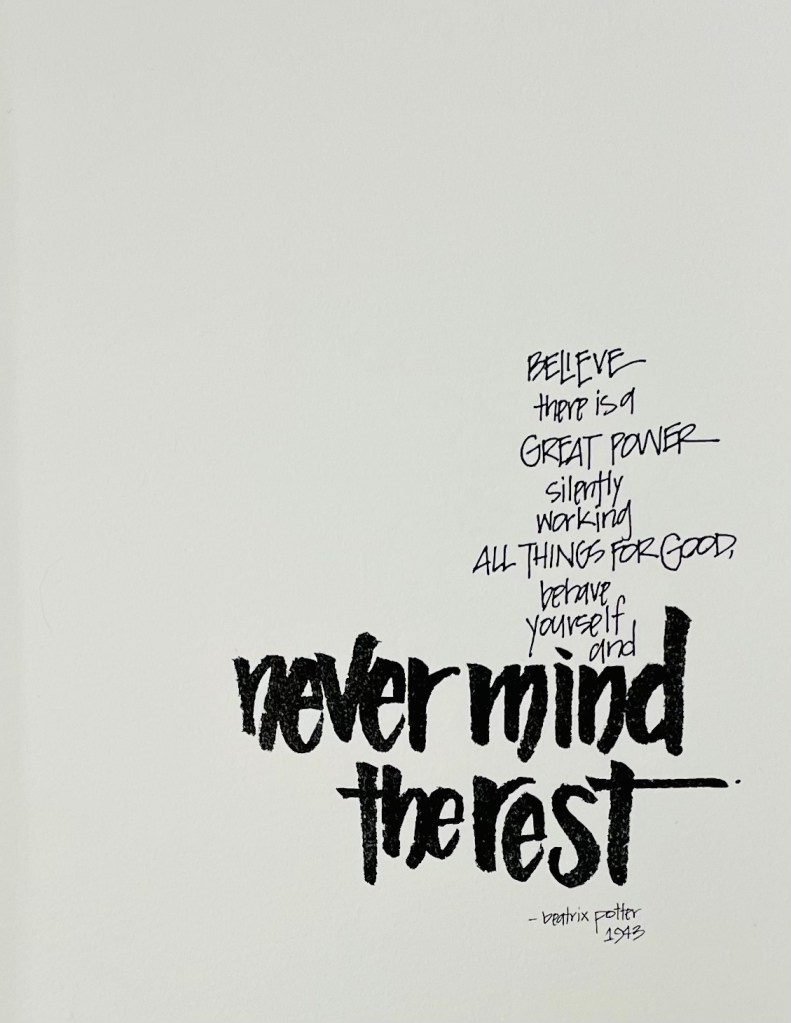 BELIEVE
there is a
GREAT POWER
silently
working
ALL THINGS FOR GOOD,
behave
yourself
and
never mind
the rest.
- beatrix potter
1943